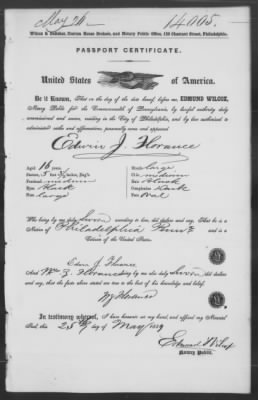 May 26
14005.
Wilcox & Notary, Custom House Brokers, and Notary Public Office, 130 Chestnut Street, Philadelphia.
PASSPORT CERTIFICATE.
United States of America.
Be it Known, That on the day of the date hereof before me, EDMUND WILCOX,
Notary Public for the Commonwealth of Pennsylvania, by lawful authority duly
commissioned and sworn, residing in the City of Philadelphia, and by law authorized to
administer oaths and affirmations, personally came and appeared
Edwin J Florance
Aged 16 years, Mouth large
Stature, 5 feet inches, Eng'h Chin medium
Forehead medium Hair black
Eyes black Complexion dark
Nose large Face oval
Who being by me duly sworn according to law, did declare and say, That he is a
Native of Philadelphia Penn'a and is a
Citizen of the United States.
Edwin J. Florance
And Wm Z Florance by me also duly sworn did declare
and say, that the facts above stated are true to the best of his knowledge and belief.
Wm Florance
In testimony whereof, I have hereunto set my hand, and affixed my Notarial
Seal, this 25th day of May 1859
Edmund Wilcox
Notary Public.